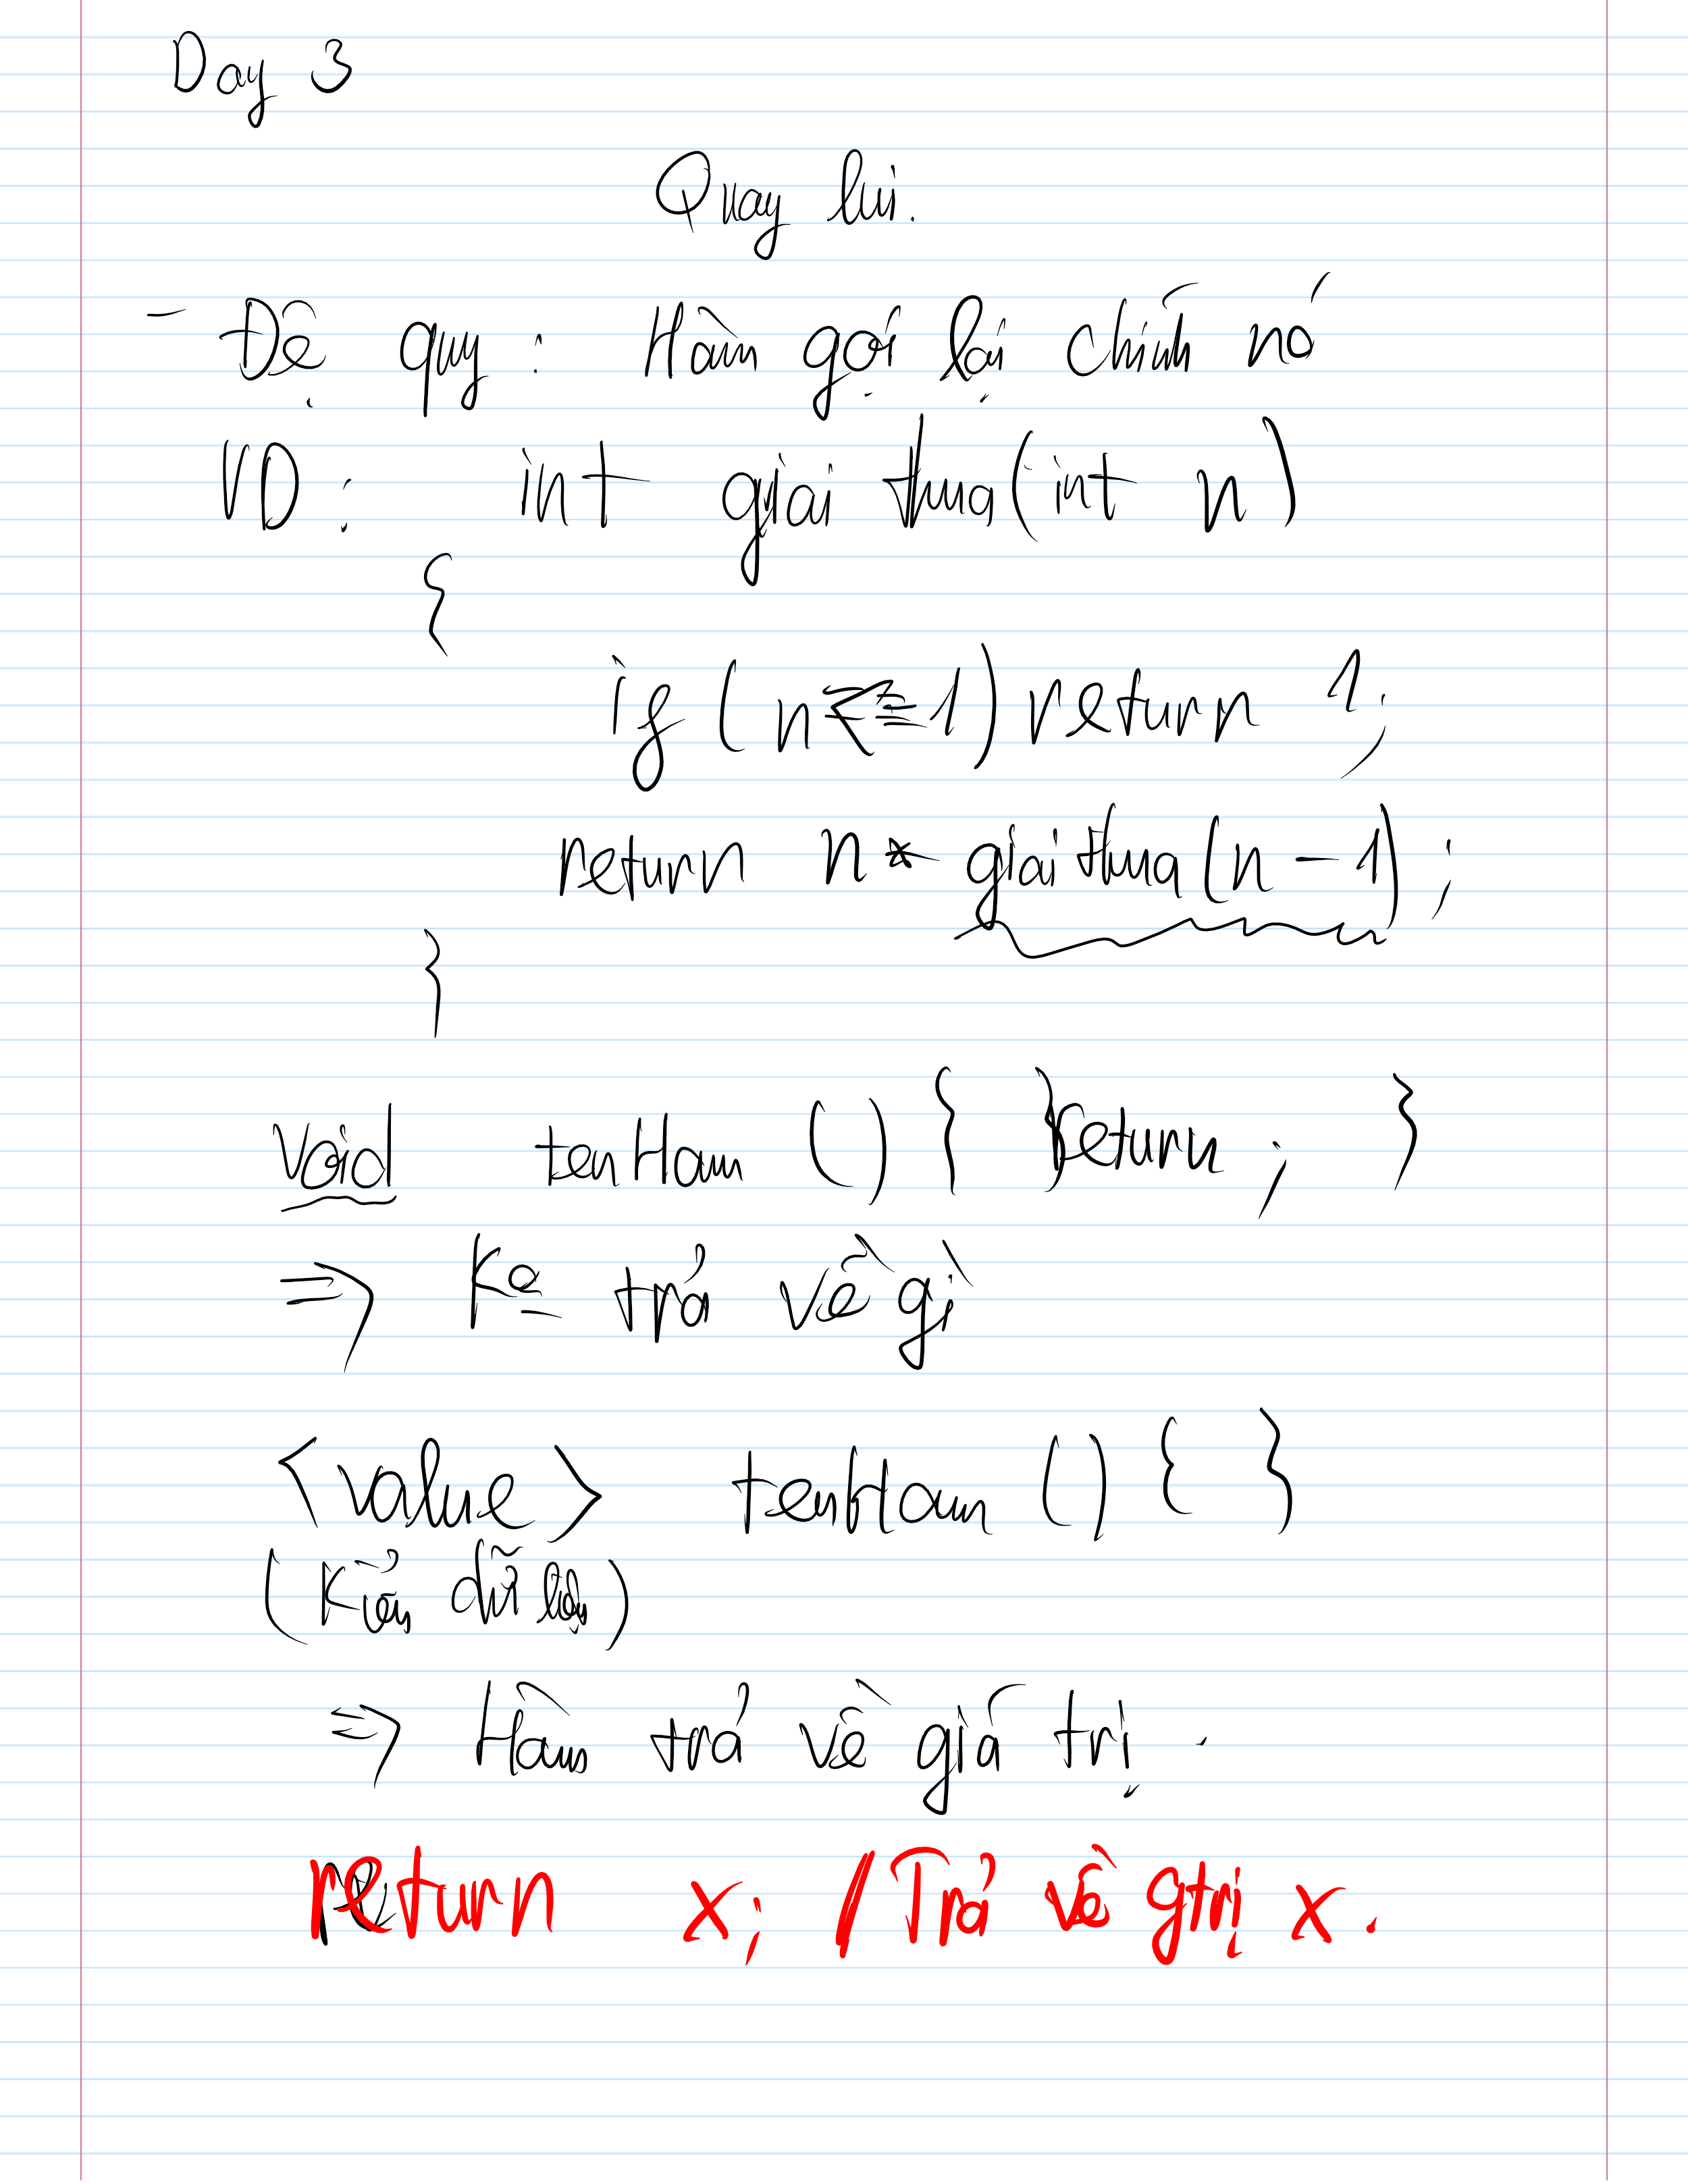 Day 3
Quay lui.
- Đệ quy: Hàm gọi lại chính nó
VD: int giai thua(int n)
{
if (n <= 1) return 1;
return n * giaithua(n - 1);
}
Void tenHam () { return; }
=> Ko trả về gì
<value> tenHam () { }
(Kiểu dữ liệu)
=> Hàm trả về giá trị.
return x; // Trả về gtrị x.